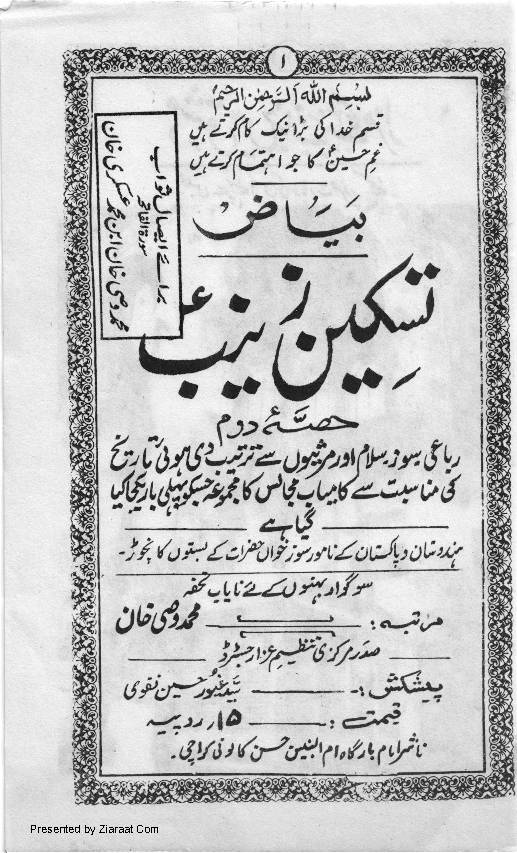 ۱
بسم اللہ الرحمن الرحیم
قسم خدا کی بڑا نیک کام کرتے ہیں
غمِ حسینؑ کا جو اہتمام کرتے ہیں
برائے ایصال ثواب
سورۃ الفاتحہ
محمد وصی خان ابن محمد عسکری خان
بَیَاض
تسکینِ زینبؑ
حصۂ دوم
رباعی سوز سلام اور مرثیوں سے ترتیب دی ہوئی تاریخ
کی مناسبت سے کامیاب مجالس کا مجموعہ جسکو پہلی بار یکجا کیا
گیا ہے
ہندوستان و پاکستان کے نامور سوز خواں حضرات کے بستوں کا نچوڑ۔
سوگوار بہنوں کے لئے نایاب تحفہ
مرتبہ: محمد وصی خان
صدر مرکزی تنظیم عزا رجسٹرڈ
پیشکش:۔ سید حسین نقوی
قیمت:۔ ۱۵؍ روپیہ
ناشر امام بارگاہ ام البنین حسن کالونی کراچی۔
Presented by Ziaraat.Com